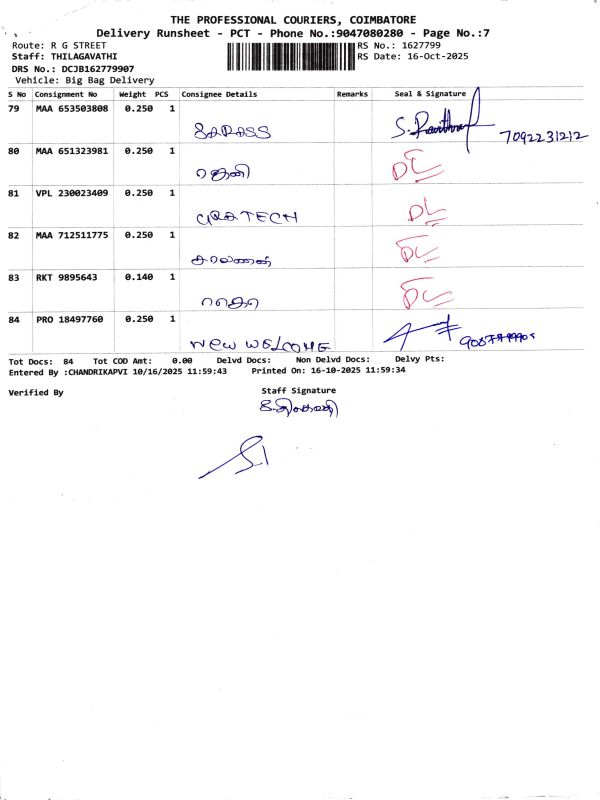 THE PROFESSIONAL COURIERS, COIMBATORE
Delivery Runsheet - PCT - Phone No.:9047080280 - Page No.:7
Route: R G STREET RS No.: 1627799
Staff: THILAGAVATHI RS Date: 16-Oct-2025
DRS No.: DCJB162779907
Vehicle: Big Bag Delivery
S No Consignment No Weight PCS Consignee Details Remarks Seal & Signature
79 MAA 653503808 0.250 1
7092231212
80 MAA 651323981 0.250 1
DL
81 VPL 230023409 0.250 1
DL
82 MAA 712511775 0.250 1
DL
83 RKT 9895643 0.140 1
DL
84 PRO 18497760 0.250 1
NEW WELCOME
Tot Docs: 84 Tot COD Amt: 0.00 Delvd Docs: Non Delvd Docs: Delvy Pts:
Entered By :CHANDRIKAPVI 10/16/2025 11:59:43 Printed On: 16-10-2025 11:59:34
Verified By Staff Signature